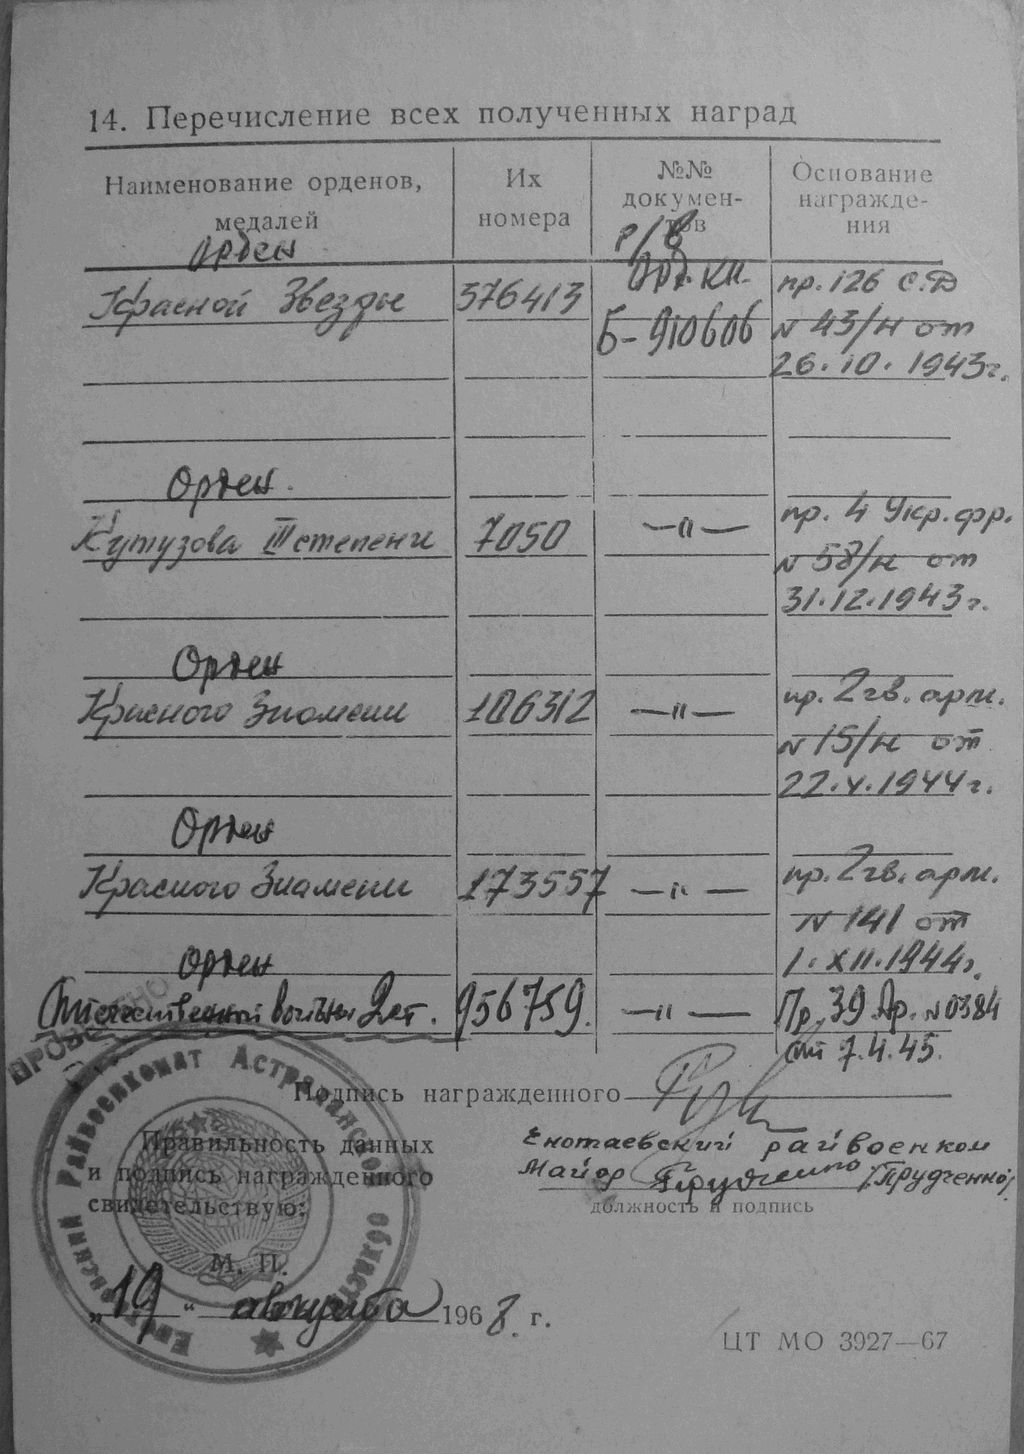 14. Перечисление всех полученных наград
Наименование орденов, медалей
Их номера
№№ докумен-тов
Основание награжде-ния
Орден
Красной Звезды
376413
р/в
Орд. кн.
Б-910606
пр. 126 С.Д
N 43/н от
26.10.1943г.
Орден
Кутузова III степени
7050
—"—
пр. 4 Укр. фр.
N 58/н от
31.12.1943г.
Орден
Красного Знамени
106312
—"—
пр. 2 гв. арм.
N 15/н от
22.V.1944г.
Орден
Красного Знамени
173557
—"—
пр. 2 гв. арм.
N 141 от
1.XII.1944г.
Орден
Отечественной войны 2 ст.
956759.
—"—
Пр. 39 Ар. N 0384
от 7.4.45.
Подпись награжденного
Правильность данных
и подпись награжденного
свидетельствую:
Енотаевский райвоенком
Майор Прудченко /Прудченко/
должность и подпись
М. П.
„19“ августа 1968 г.
ЦТ МО 3927—67
Енотаевский Райвоенкомат Астраханской области